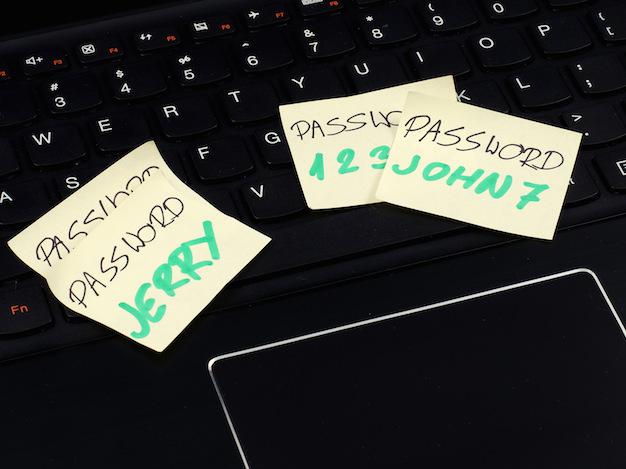 F3 F4 F5 F6 F7 F8
# $ % ^ & * ( )
3 4 5 6 7 8 9 0
W E R T Y U I O P
A S F G K L : ;
V >
Fn
PASSWORD
PASSWORD
JERRY
PASSWO
123
PASSWORD
JOHN7